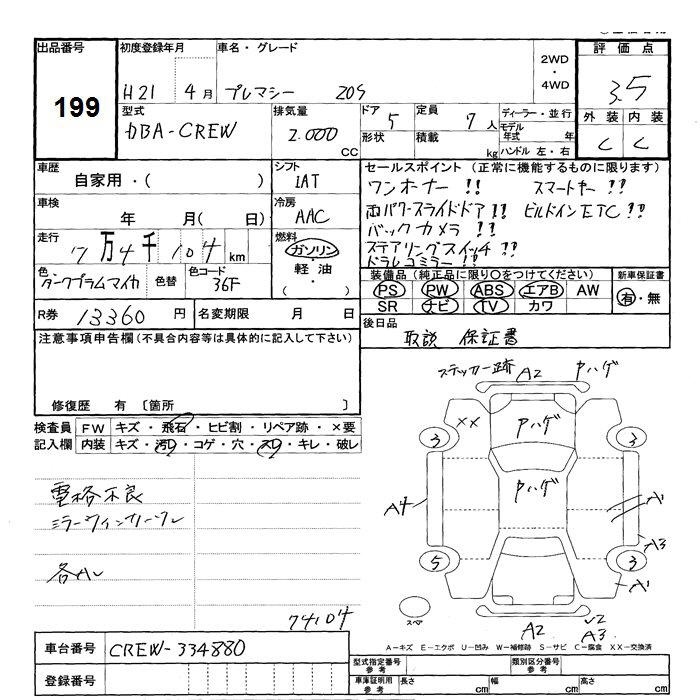 出品番号
199
初度登録年月
H21 4月
車名・グレード
プレマシー 20S
2WD
・
4WD
評価点
3.5
外装 内装
C C
型式
DBA-CREW
排気量
2.000
CC
ドア 5
形状
定員 7人
積載 kg
ディーラー・並行
モデル年式 年
ハンドル 左・右
車歴
自家用・( )
シフト
IAT
車検
年 月( 日)
冷房
AAC
走行
7万4千104km
燃料
ガソリン
・
軽油
・
( )
色
ダークプラムマイカ
色替
色コード
36F
セールスポイント (正常に機能するものに限ります)
ワンオーナー!! スマートキー!!
両パワースライドドア!! ビルドインETC!!
バックカメラ!!
ステアリングスイッチ!!
ドラレコミラー!!
装備品 (純正品に限り○をつけてください)
PS PW ABS エアB AW
SR ナビ TV カワ
新車保証書
有・無
R券 13360円
名変期限 月 日
後日品
取説 保証書
注意事項申告欄(不具合内容等は具体的に記入して下さい)
修復歴 有 〔箇所 〕
検査員記入欄
FW キズ・飛石・ヒビ割・リペア跡・×要
内装 キズ・汚レ・コゲ・穴・スレ・キレ・破レ
電格不良
ミラーウィンカーワレ
各AU
74104
ステッカー跡 A2 Pハゲ
XX
Pハゲ
3 3
Pハゲ
A4
A1
A3
5 3
A1
スペア
A2
U2
A3
A-キズ E-エクボ U-凹み W-補修跡 S-サビ C-腐食 XX-交換済
車台番号 CREW-334880
登録番号
型式指定番号 参考
類別区分番号 参考
車庫証明用 参考
長さ cm 幅 cm 高さ cm